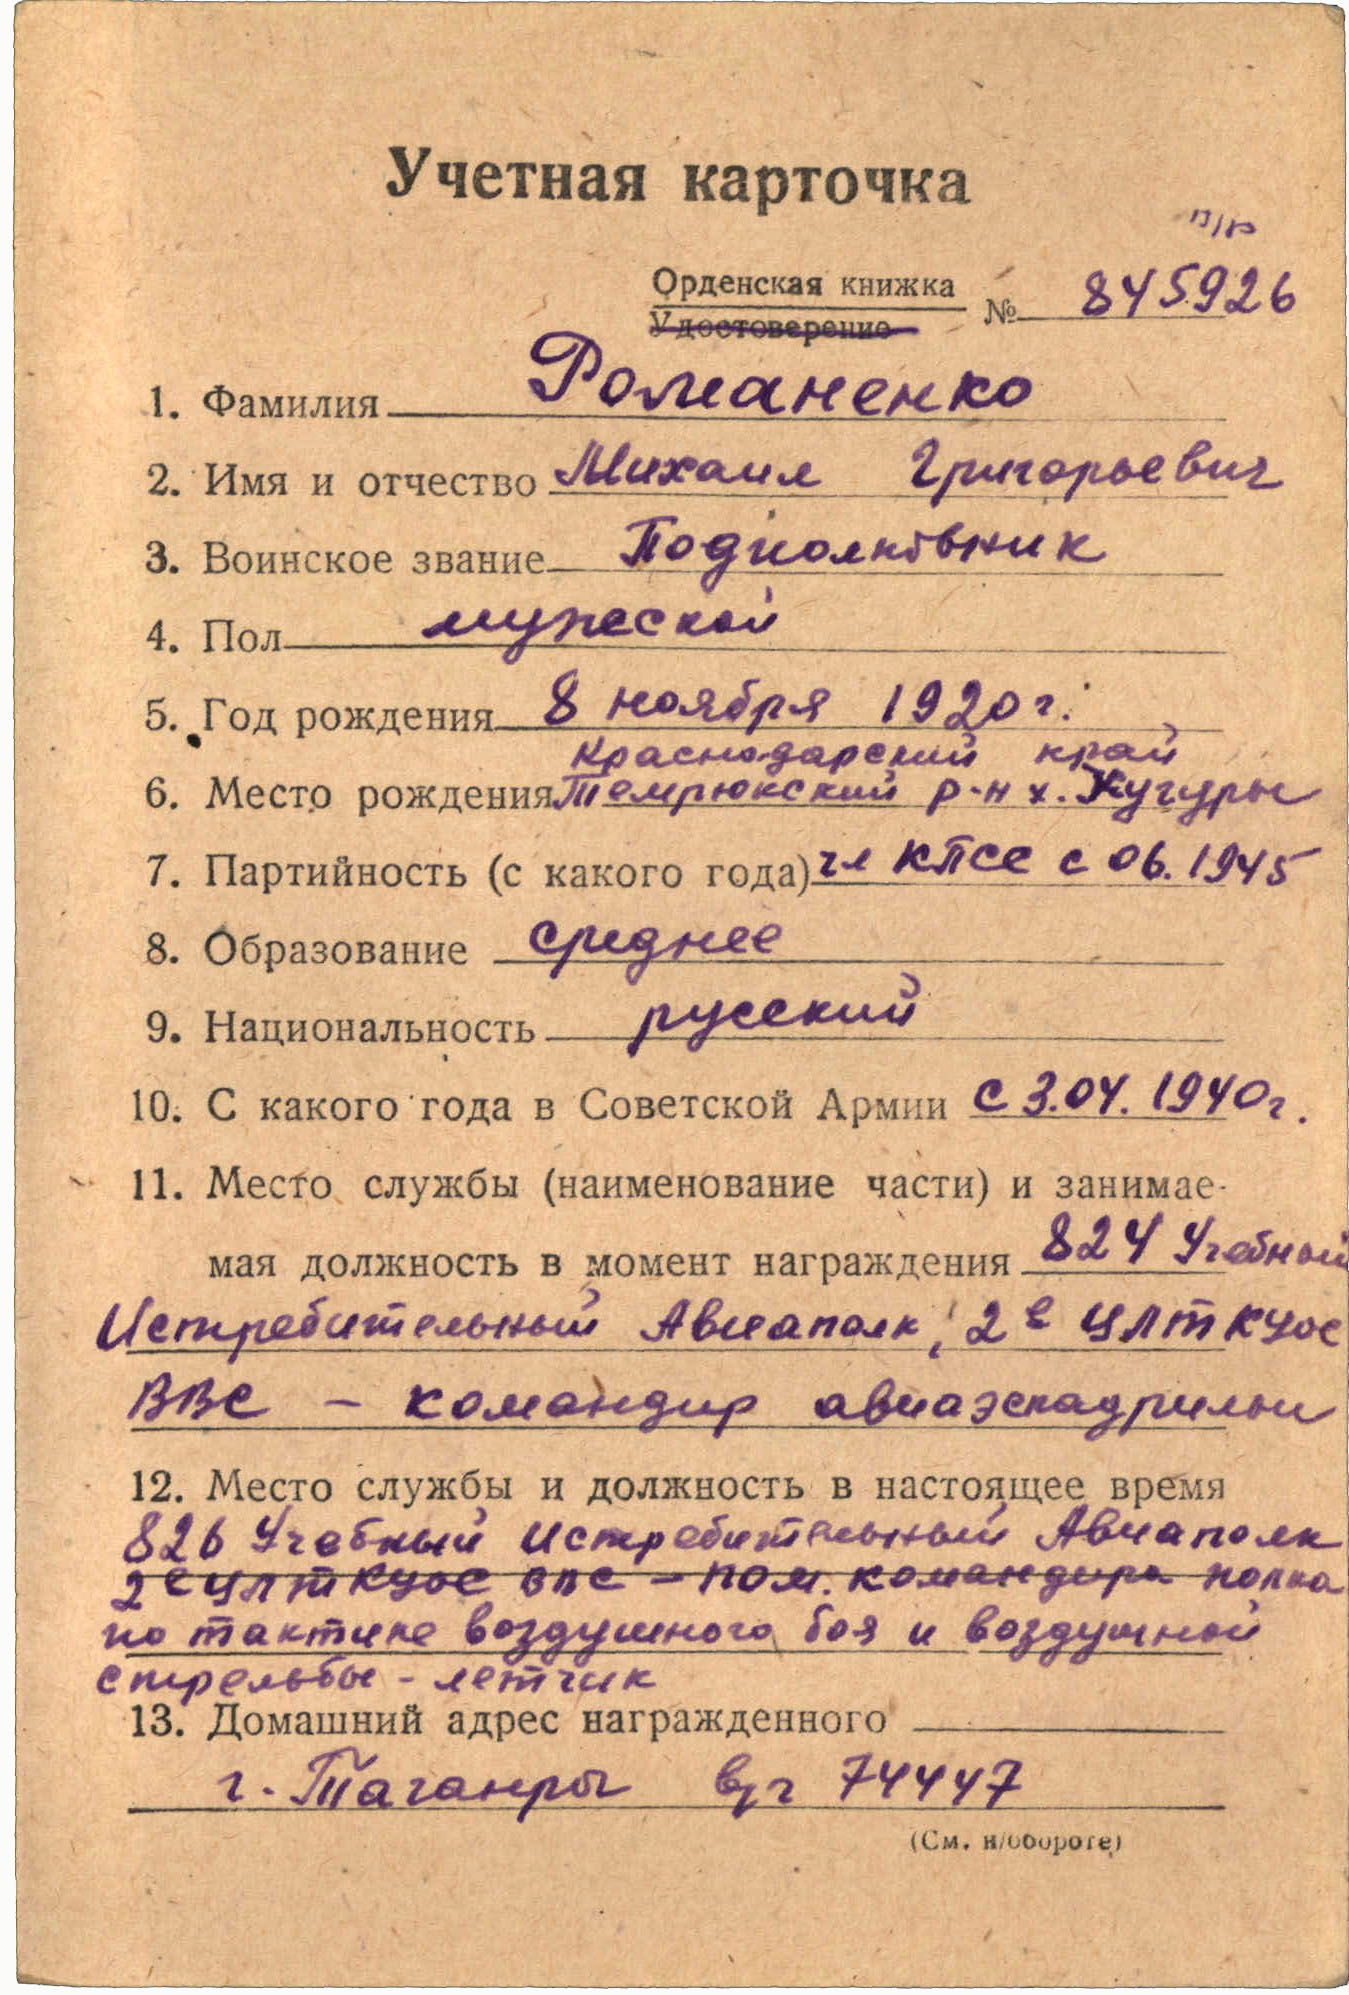 Учетная карточка
Орденская книжка
Удостоверение
№ 845926
1. Фамилия Романенко
2. Имя и отчество Михаил Григорьевич
3. Воинское звание Подполковник
4. Пол мужской
5. Год рождения 8 ноября 1920 г.
Краснодарский край
6. Место рождения Темрюкский р-н х. Кучугуры
7. Партийность (с какого года) чл КПСС с 06.1945
8. Образование среднее
9. Национальность русский
10. С какого года в Советской Армии с 3.04.1940 г.
11. Место службы (наименование части) и занимае-
мая должность в момент награждения 824 Учебный
Истребительный Авиаполк, 2е ЦЛТКУОС
ВВС – командир авиаэскадрильи
12. Место службы и должность в настоящее время
826 Учебный Истребительный Авиаполк
2е ЦЛТКУОС ВВС – пом. командира полка
по тактике воздушного боя и воздушной
стрельбы - летчик
13. Домашний адрес награжденного
г. Таганрог в/ч 74447
(См. н/обороте)